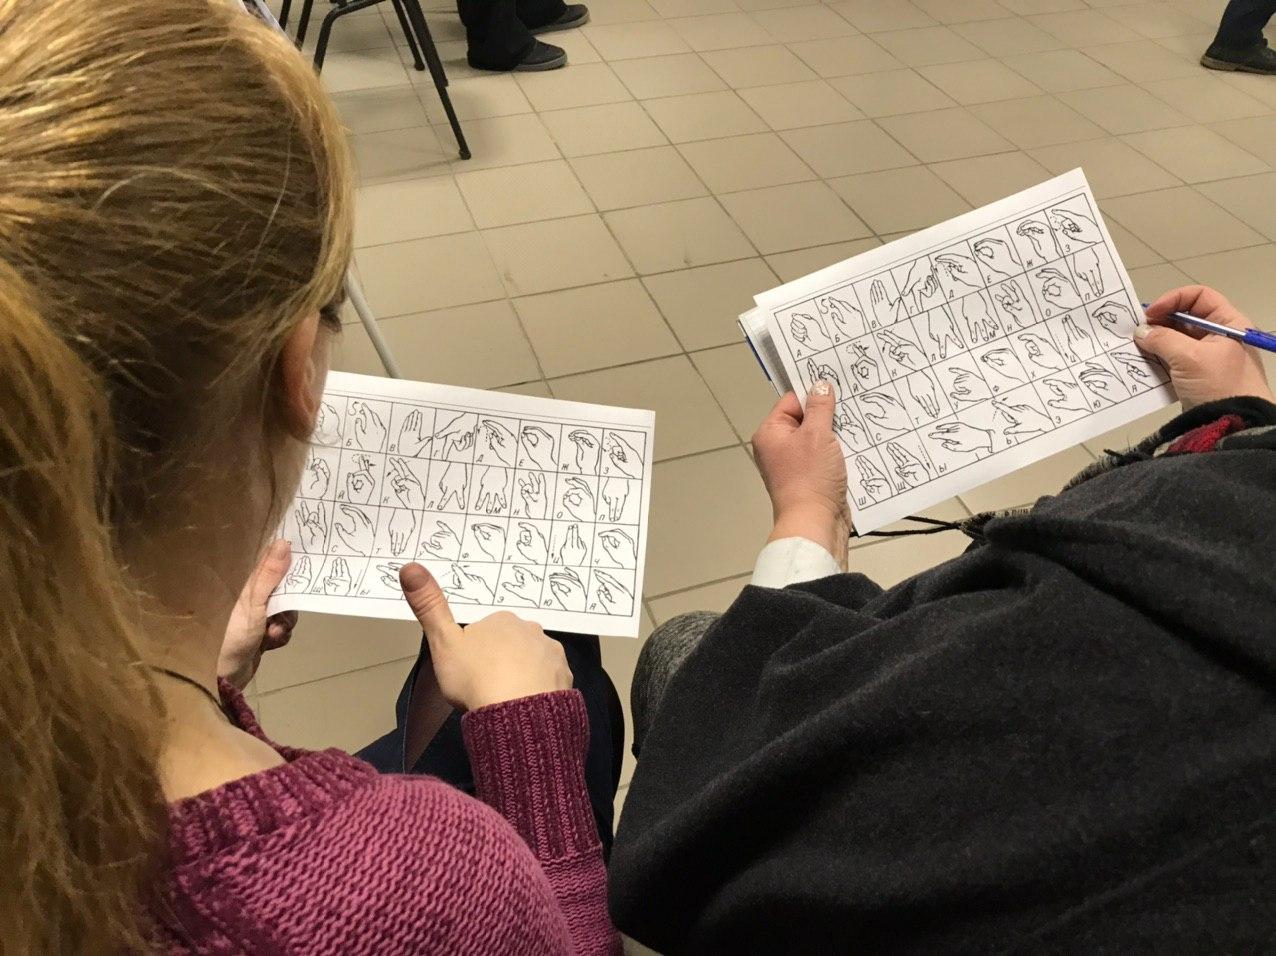 Б В Д Е Ж З
Й К Л М Н О П
С Т Ф Х Ц Ч
Щ Ы Э Ю Я
А Б В Д Е Ж З
Й К Л Н О П
С Т Ф Х Ц Ч
Ш Щ Ы Ь Э Ю Я